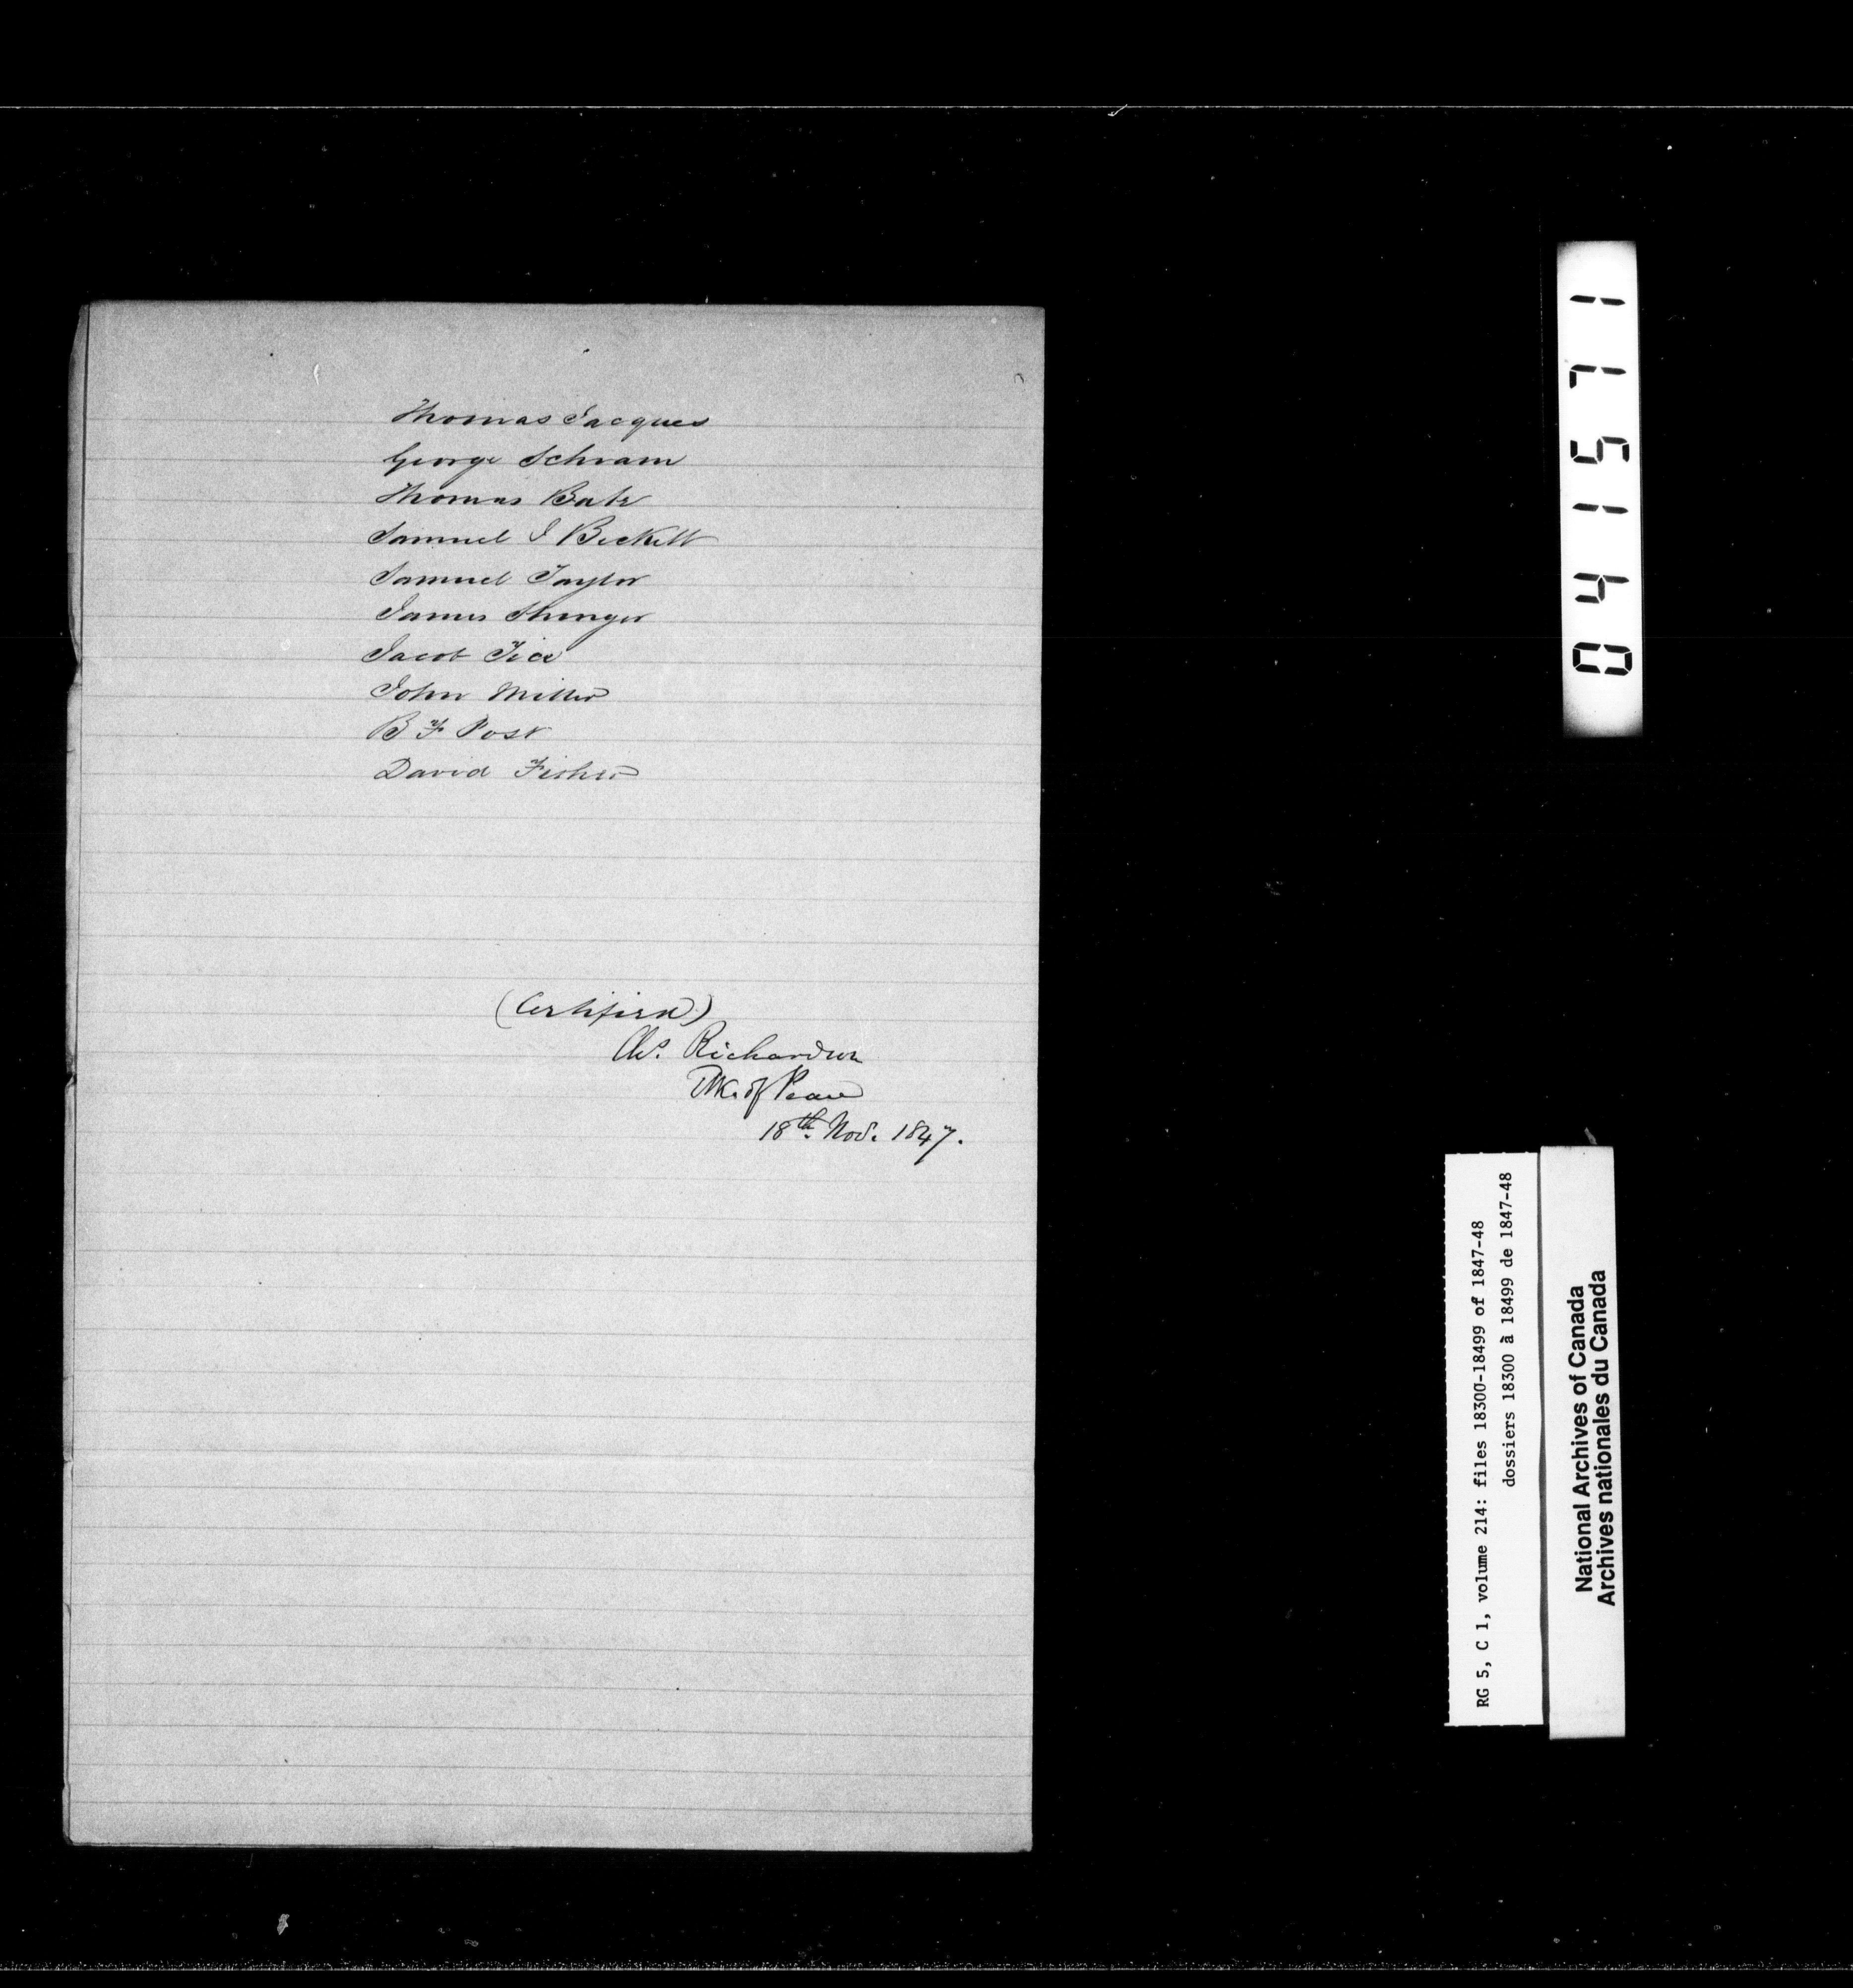 Thomas Jacques
George Schram
Thomas Bate
Samuel J Beckett
Samuel Taylor
James Stringer
Jacob Tice
John Miller
B F Post
David Fisher
(Certified)
Chs. Richardson
Clk. of Peace
18th. Nov. 1847.
041571
RG 5, C 1, volume 214: files 18300-18499 of 1847-48
dossiers 18300 à 18499 de 1847-48
National Archives of Canada
Archives nationales du Canada